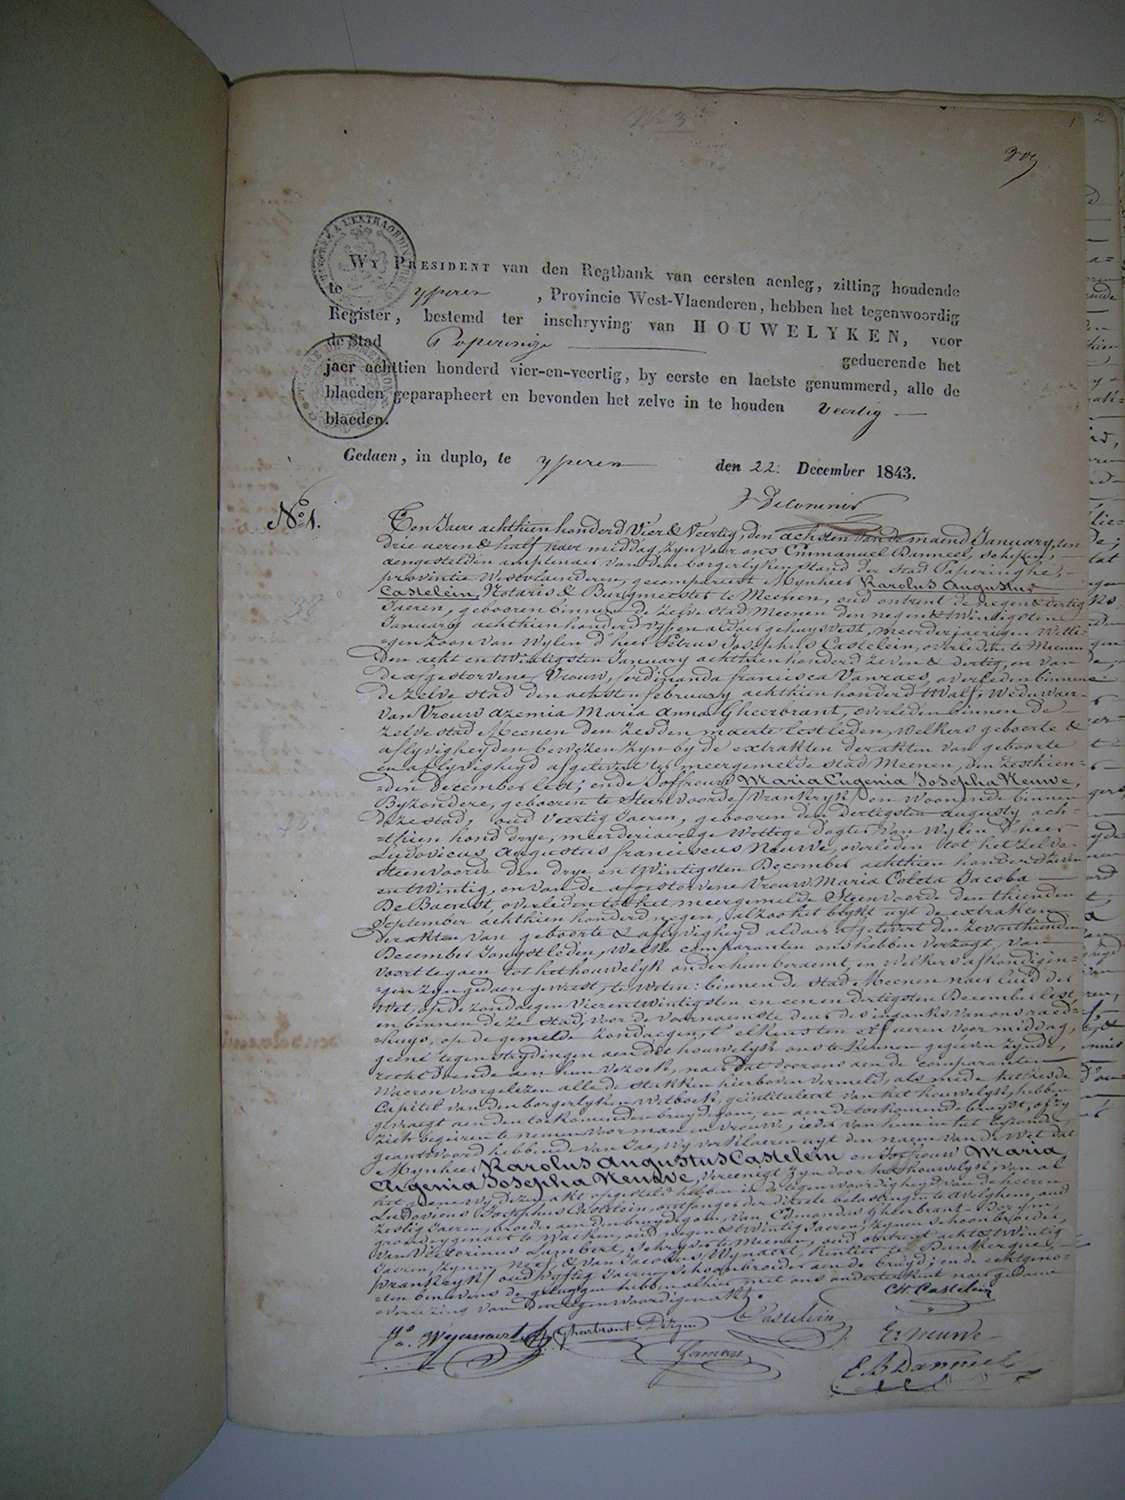 Wy President van den Regtbank van eersten aenleg, zitting houdende
te yperen, Provincie West-Vlaenderen, hebben het tegenwoordig
Register, bestemd ter inschryving van HOUWELYKEN, voor
de Stad Poperinge geduerende het
jaer achttien honderd vier-en-veertig, by eerste en laetste genummerd, alle de
blaeden geparapheert en bevonden het zelve in te houden veertig
blaeden.
Gedaen, in duplo, te yperen den 22. December 1843.
No 1.
Ten Jaere achthien honderd Vier & Veertig, den achsten van de maend January, ten
drie ueren & half naer middag, zyn voor ons Emmanuel Danneel, schepen,
van den borgerlyken stand der Stad Poperinghe,
provintie Westvlaenderen, gecompareert Mynheer Karolus Augustus
Castelein, Notaris & Burgmeester te Meenen, oud ontrent de negen & dertig
Jaeren, gebooren binnen de zelve stad Meenen den negen & twintigsten
January achthien honderd vyf, en aldaer gehuysvest, meerderjaerigen Wetti-
=gen Zoon van Wylen d'heer Petrus Josephus Castelein, overleden te Meenen
den acht en twintigsten January achthien honderd zeven & dertig, en van
de afgestorvene Vrouw ferdinanda francisca Vanraes, overleden binnen
de zelve stad den achsten february achthien honderd twalf, Weduwaer
van Vrouw Azemia Maria Anna Gheerbrant, overleden binnen de
zelve stad Meenen den zesden maerte lest leden, welkers geboorte &
aflyvigheyd en bewezen zyn by de extrakten der akten van geboorte
en aflyvigheyd afgelevert te meergemelde stad Meenen, den zeshien-
=den December lest; ende Joffrouw Maria Eugenia Josepha Neuwe,
Byzondere, gebooren te Steenvoorde /vrankryk/ en woonende binnen
deze stad, oud veertig Jaeren, gebooren den dertigsten augusty ach-
=thien hond drye, meerderjaerige Wettige dogter van Wylen d'heer
Ludovicus Augustus franciscus Neuwe, overleden tot het zelve
Steenvoorde den drye en twintigsten December achthien honderd
en twintig, en van de afgestorvene Vrouw Maria Coleta Jacoba
De Baerest overleden tot het meergemelde Steenvoorde den thienden
September achthien honderd negen, alzoo het blykt uyt de extrakten
der akten van geboorte & aflyvigheyd aldaer afgelevert den zeventhienden
December Jongstleden, welke comparanten ons hebben verzogt, van
voort te gaen tot het houwelyk onder hun beraemt, en welkers afkondigin-
=gen zyn gedaen geweest, te weten: binnen de stad Meenen naer luid der
Wet, op de zondagen vier en twintigsten en een en dertigsten December lest,
en binnen deze stad, voor de voornaemste deur de van ons raed-
=huys, op de gemelde zondaegen, t'elkens ten elf ueren voor middag,
geene tegenstrydingen aen dit houwelyk ons te kennen gegeven zynde,
recht doende aen hun verzoek, naer dat door ons aen de comparanten
waeren voorgelezen alle de stukken hierboven vermeld, als mede het zesde
Capitel van den borgerlyken Wetboek, geintituleert van het houwelyk, hebben
gevraegt aen den toekomenden bruydegom, en aen de toekomende bruyd, of zy
zich begeiren te nemen voor man en vrouw, ieder van hun in het byzonder
geantwoord hebbende van Jae, wy verklaeren uyt den naem van de Wet dat
Mynheer Karolus Augustus Castelein en Joffrouw Maria
Eugenia Josepha Neuwe, vereenigt zyn door het houwelyk, van al
het gene wy deze akt opgesteld hebben in de tegenwoordigheyd van de heeren
Ludovicus Josephus Castelein, ontfanger der directe belastingen te Avelghem, oud
zestig Jaeren, broeder aen den bruydegom, van Edmondus Gheerbrant
te Wacken, oud negen & twintig Jaeren, zynen schoonbroeder,
van Victorinus Lambert, te Meenen, oud ontrent acht & twintig
Jaeren, zynen Neef, & van Jacobus Wynaert, Rentier te Dunkerque
/vrankryk/ oud vyftig Jaeren, schoonbroeder aen de bruyd; en de echtgeno-
=ten benevens de getuygen hebben alhier met ons onderteekent naer gedaene
voorlezing van den tegenwoordigen akt.
Ch. Castelein
Castelein
E. Neuwe
E. B Danneel